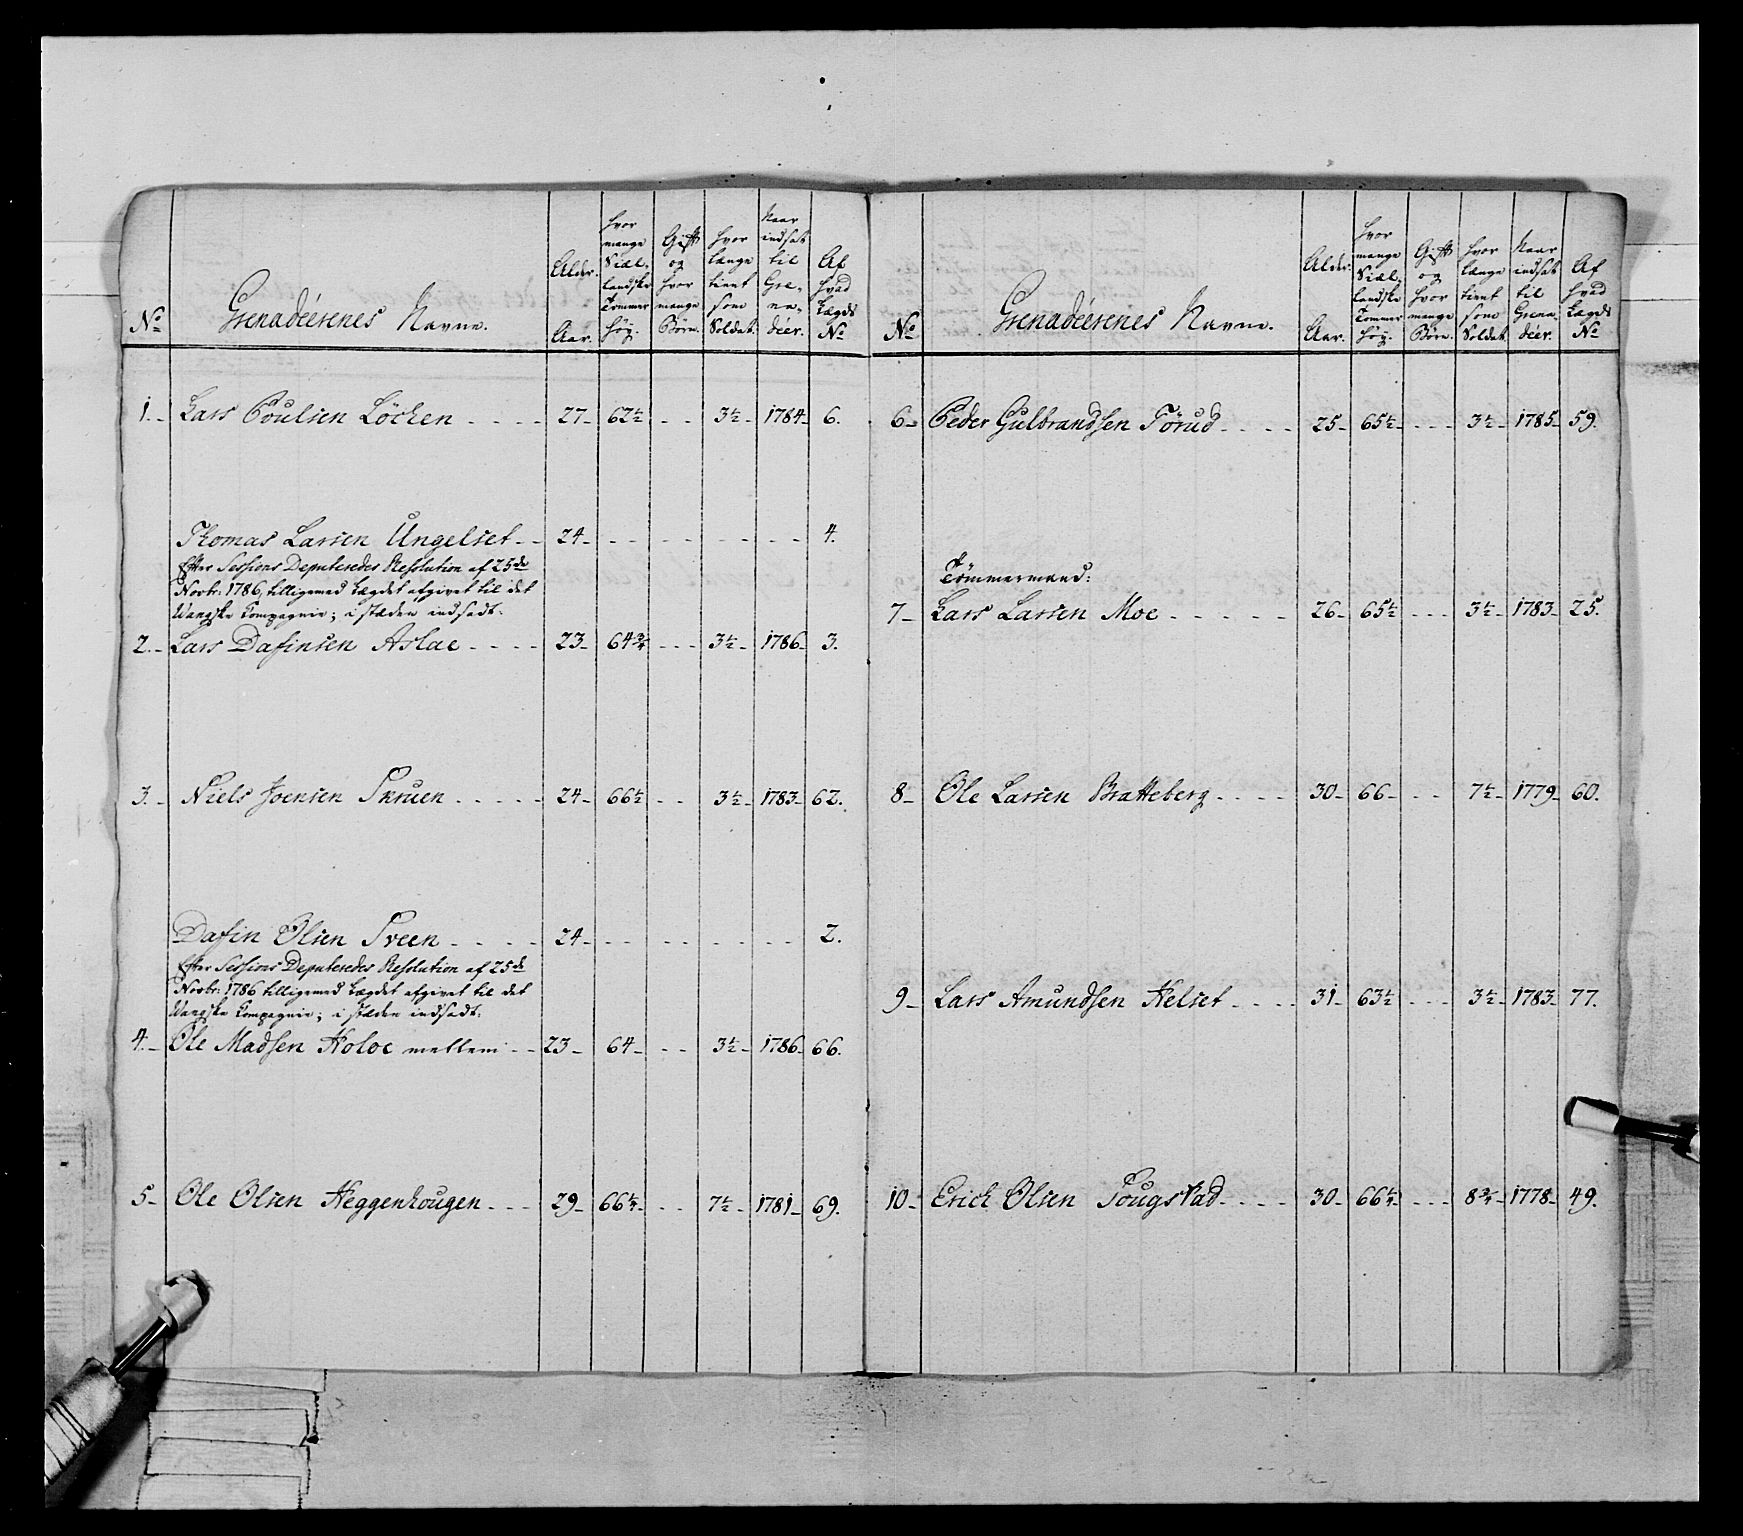 No
Grenadéerenes Navne.
Alder. Aar.
hvor mange Siæl. landske Tommer høy.
Gift og hvor mange Børn.
hvor længe tient som Soldat.
Naar indsat til Gre- na- déer.
Af hvad Lægds No
1. Lars Poulsen Löchen 27 62½ 3½ 1784 6.
Thomas Larsen Ungelset 24 4.
Efter Sessions Deputeredes Resolution af 25de
Novbr: 1786, tilligemed Lægdet afgivet til det
Wangske Compagnie; i stæden indsadt.
2. Lars Dafinsen Aslae 23 64¾ 3½ 1786 3.
3. Niels Joensen Skruen 24 66½ 3½ 1783 62.
Dafin Olsen Sveen 24 2.
Efter Sessions Deputeredes Resolution af 25de
Novbr: 1786 tilligemed Lægdet afgivet til det
Wangske Compagnie; i stæden indsadt.
4. Ole Madsen Holoe mellem 23 64 3½ 1786 66.
5 Ole Olsen Heggenhougen 29 66¼ 7½ 1781 69.
No
Grenadéerenes Navne.
Alder. Aar.
hvor mange Siæl. landske Tommer høy.
Gift og hvor mange Børn.
hvor længe tient som Soldat.
Naar indsat til Grena- déer.
Af hvad Lægds No
6 Peder Gulbrandsen Törud 25 65½ 3½ 1785 59.
Tömmermand:
7 Lars Larsen Moe 26 65½ 3½ 1783 25.
8 Ole Larsen Bratteberg 30 66 7½ 1779 60.
9 Lars Amundsen Helset 31 63½ 3½ 1783 77.
10 Erich Olsen Tougstad 30 66¼ 8¾ 1778 49.